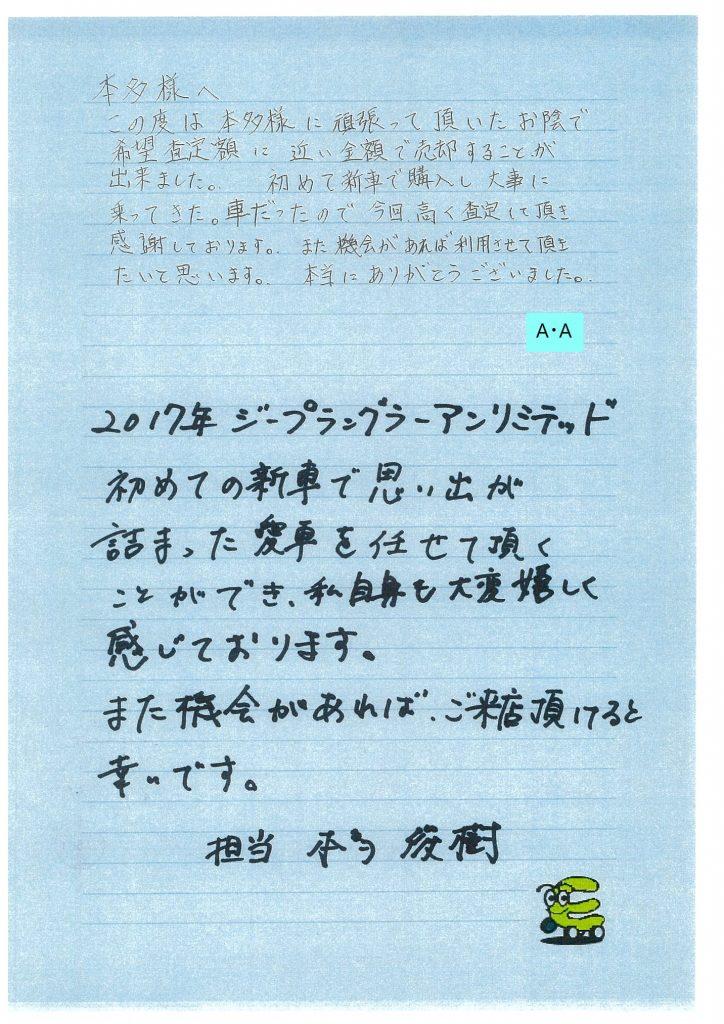 本多様へ
この度は本多様に頑張って頂いたお陰で
希望査定額に近い金額で売却することが
出来ました。 初めて新車で購入し大事に
乗ってきた。車だったので今回、高く査定して頂き
感謝しております。また機会があれば利用させて頂き
たいと思います。 本当にありがとうございました。
A・A
2017年 ジープラングラーアンリミテッド
初めての新車で思い出が
詰まった愛車を任せて頂く
ことができ、私自身も大変嬉しく
感じております。
また機会があれば、ご来店頂けると
幸いです。
担当 本多 俊樹